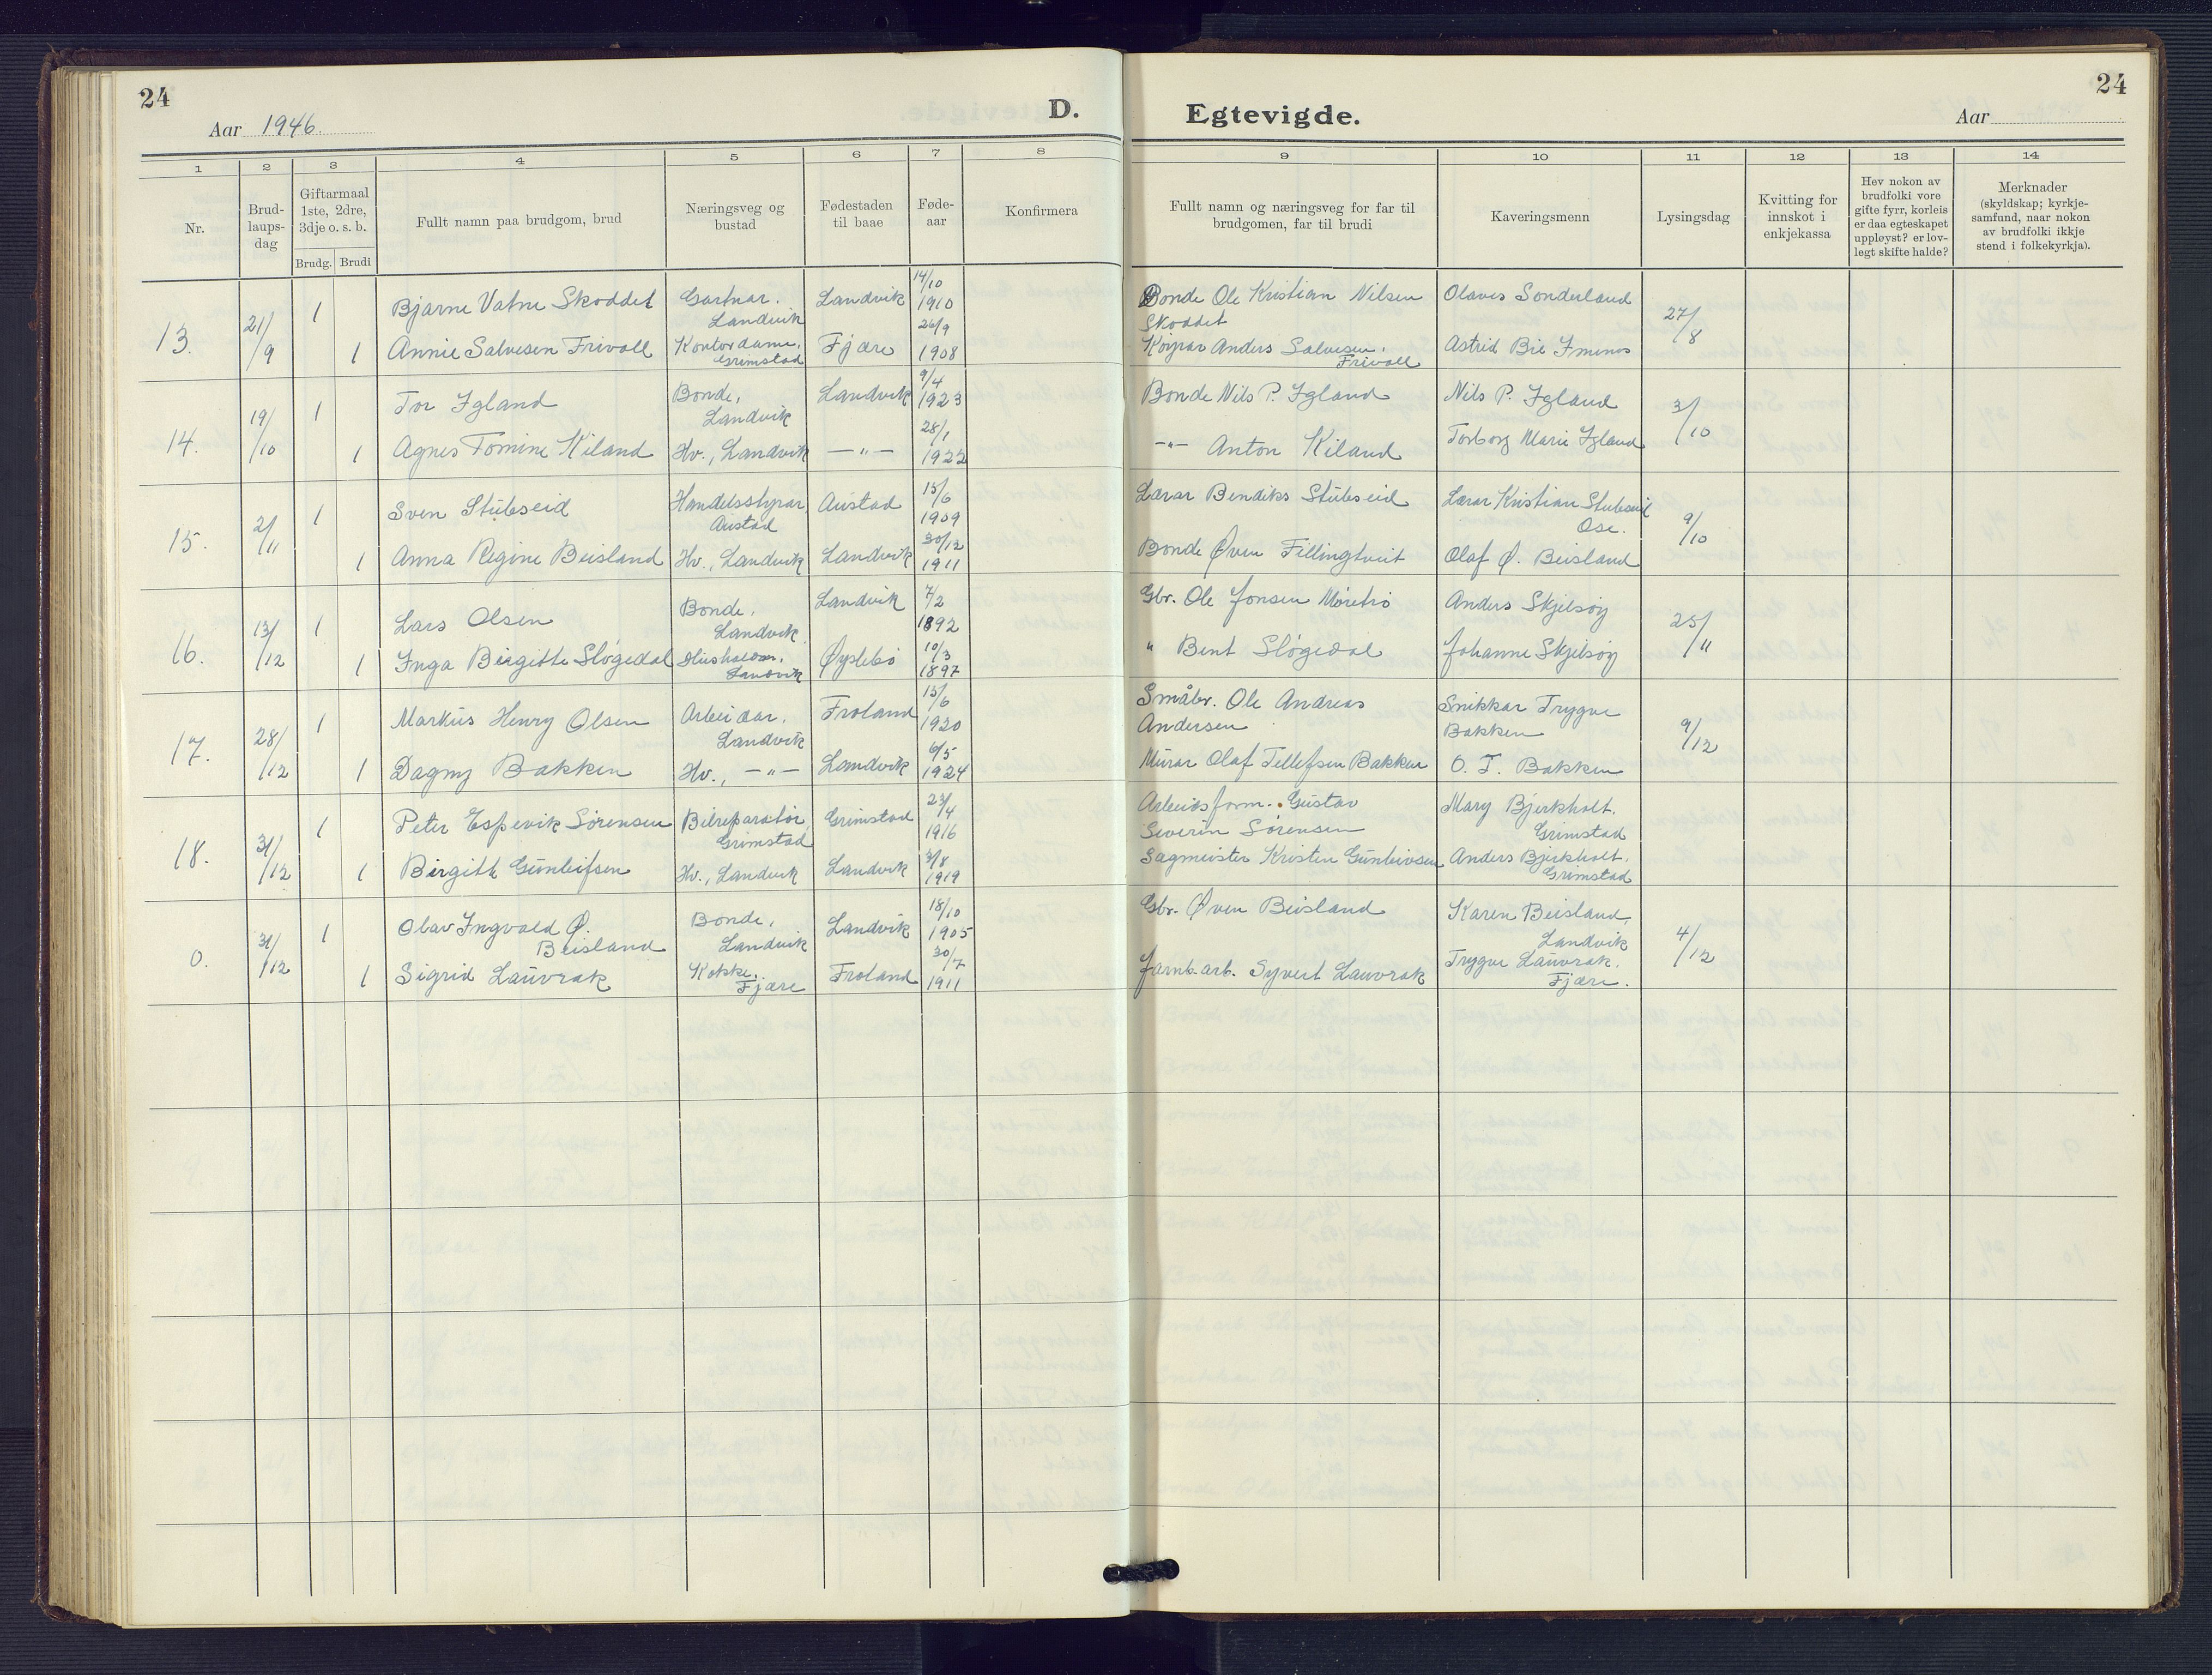 24
Aar 1946.
D.
Egtevigde.
Aar
24
1
2
3
4
5
6
7
8
9
10
11
12
13
14
Nr.
Brud-
laups-
dag
Giftarmaal
1ste, 2dre,
3dje o. s. b.
Brudg.
Brudi
Fullt namn paa brudgom, brud
Næringsveg og
bustad
Fødestaden
til baae
Føde-
aar
Konfirmera
Fullt namn og næringsveg for far til
brudgomen, far til brudi
Kaveringsmenn
Lysingsdag
Kvitting for
innskot i
enkjekassa
Hev nokon av
brudfolki vore
gifte fyrr, korleis
er daa egteskapet
uppløyst? er lov-
legt skifte halde?
Merknader
(skyldskap; kyrkje-
samfund, naar nokon
av brudfolki ikkje
stend i folkekyrkja).
13.
21/9
1
Bjarne Vatne Skoddet
Gartnar.
Landvik
Landvik
14/10
1910
Bonde Ole Kristian Nilsen
Skoddet
Olaves Sonderland
27/8
1
Annie Salvesen Frivoll
Kontordame,
Grimstad
Fjære
26/9
1908
Køyrar Anders Salvesen,
Frivoll
Astrid Bie
14.
19/10
1
Tor Igland
Bonde,
Landvik
Landvik
9/4
1923
Bonde Nils P. Igland
Nils P. Igland
3/10
1
Agnes Tomine Kiland
Hv., Landvik
—"—
28/1
1922
—"— Anton Kiland
Torborg Marie Igland
15.
2/11
1
Sven Stubseid
Handelsstyrar
Austad
Austad
15/6
1909
Lærar Bendiks Stubseid
Lærar Kristian Stubseid
Ose.
9/10
1
Anna Regine Beisland
Hv., Landvik
Landvik
30/12
1911
Bonde Øven Fillingtveit
Olaf Ø. Beisland
16.
13/12
1
Lars Olsen
Bonde,
Landvik
Landvik
7/2
1892
Gbr. Ole Jonsen Møretrø
Anders Skjelsøy
25/11
1
Inga Birgitte Sløgedal
Landvik
Øyslebø
10/3
1897
" Bent Sløgedal
Johanne Skjelsøy
17.
28/12
1
Markus Henry Olsen
Arbeidar.
Landvik
Froland
15/6
1920
Småbr. Ole Andreas
Andersen
Snikkar Trygve
Bakken
9/12
1
Dagny Bakken
Hv., —"—
Landvik
6/5
1924
Murar Olaf Tellefsen Bakken
O. T. Bakken
18.
31/12
1
Peter Espevik Sørensen
Bilreparatør
Grimstad
Grimstad
23/4
1916
Arbeidsform. Gustav
Severin Sørensen
Mary Bjerkholt.
Grimstad
1
Birgith Gunleifsen
Hv., Landvik
Landvik
3/8
1919
Sagmeister Kristen Gunleivsen
Anders Bjerkholt.
Grimstad
0.
31/12
1
Olav Ingvald Ø.
Beisland
Bonde,
Landvik
Landvik
18/10
1905
Gbr. Øven Beisland
Karen Beisland,
Landvik
4/12
1
Sigrid Lauvrak
Kokke,
Fjære
Froland
30/7
1911
Jarnb.arb. Syvert Lauvrak
Trygve Lauvrak.
Fjære.